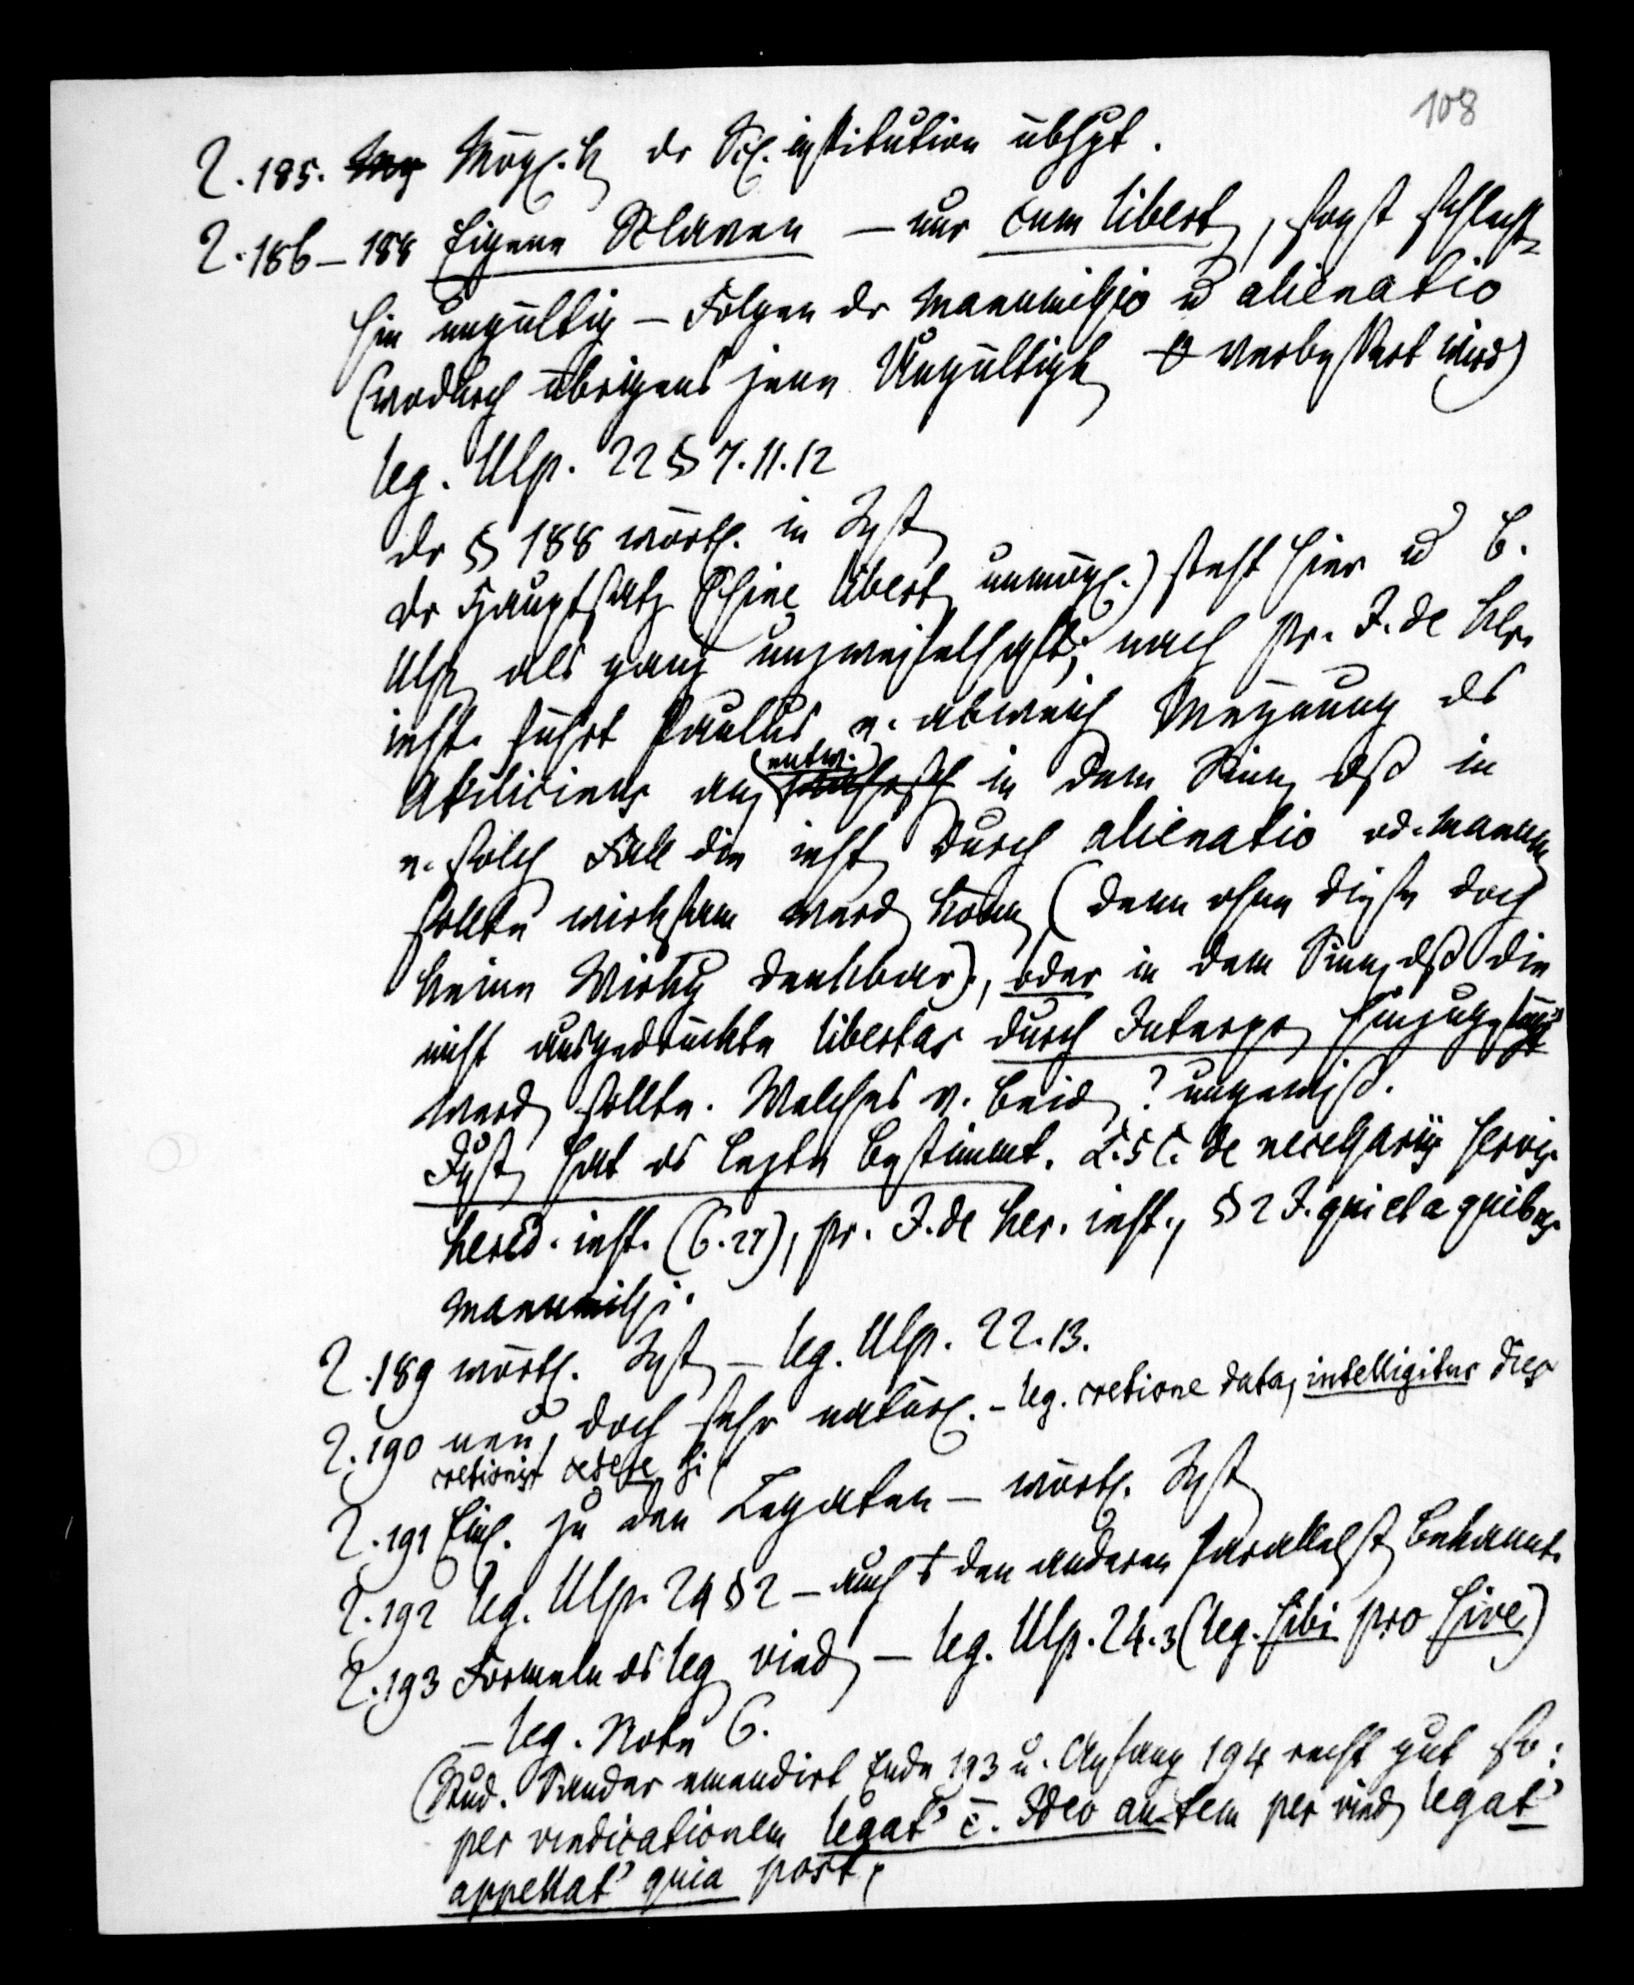 108
2.185. Mög Mögl.k der Scl. institution übhpt.
2.186–188 Eigene Sclaven – nur cum libert, sonst schlecht-
hin ungültig – Folgen der manumissio u alienatio
(wodurch übrigens jene Ungültigk 0 verbessert wird)
leg. Ulp. 22 § 7.11.12
der § 188 wörtl. in Inst
der Hauptsatz (sine libert unmögl.) steht hier u b.
Ulp als ganz unzweifelhaft; nach pr. I. de her.
inst. führt Paulus e. abweich Meynung des
Atilicinus an, (entw.) in dem Sinn daß in
e. solch Fall die inst durch alienatio od. manum
sollte wirksam werd könn (denn ohne diese doch
keine Wirkg denkbar), oder in dem Sinn, daß die
nicht ausgedrückte libertas durch Interpr hinzugefügt
werd sollte. Welches v. beid? ungewiß.
Just hat es letzte bestimmt. L. 5 C. de necessariis servis
hered. inst. (6.27), pr. I. de her. inst., § 2 I. qui et a quibus
manumissi.
2.189 wörtl. Inst – leg. Ulp. 22.13.
2.190 neu, doch sehr natürl. – leg. cretione data, intelligitur dies
cretionis cedere si
2.191 Einl. zu den Legaten – wörtl. Inst
2.192 leg. Ulp. 24 § 2 – auch den anderen Parallelst bekannt.
2.193 Formeln des leg vind – leg. Ulp. 24.3 (leg. sibi pro sive)
– leg. Note 6.
(Stud. Sander emendirt Ende 193 u. Anfang 194 recht gut so:
per vindicationem legat' ē. Ideo autem per vind legat'
appellat' quia post